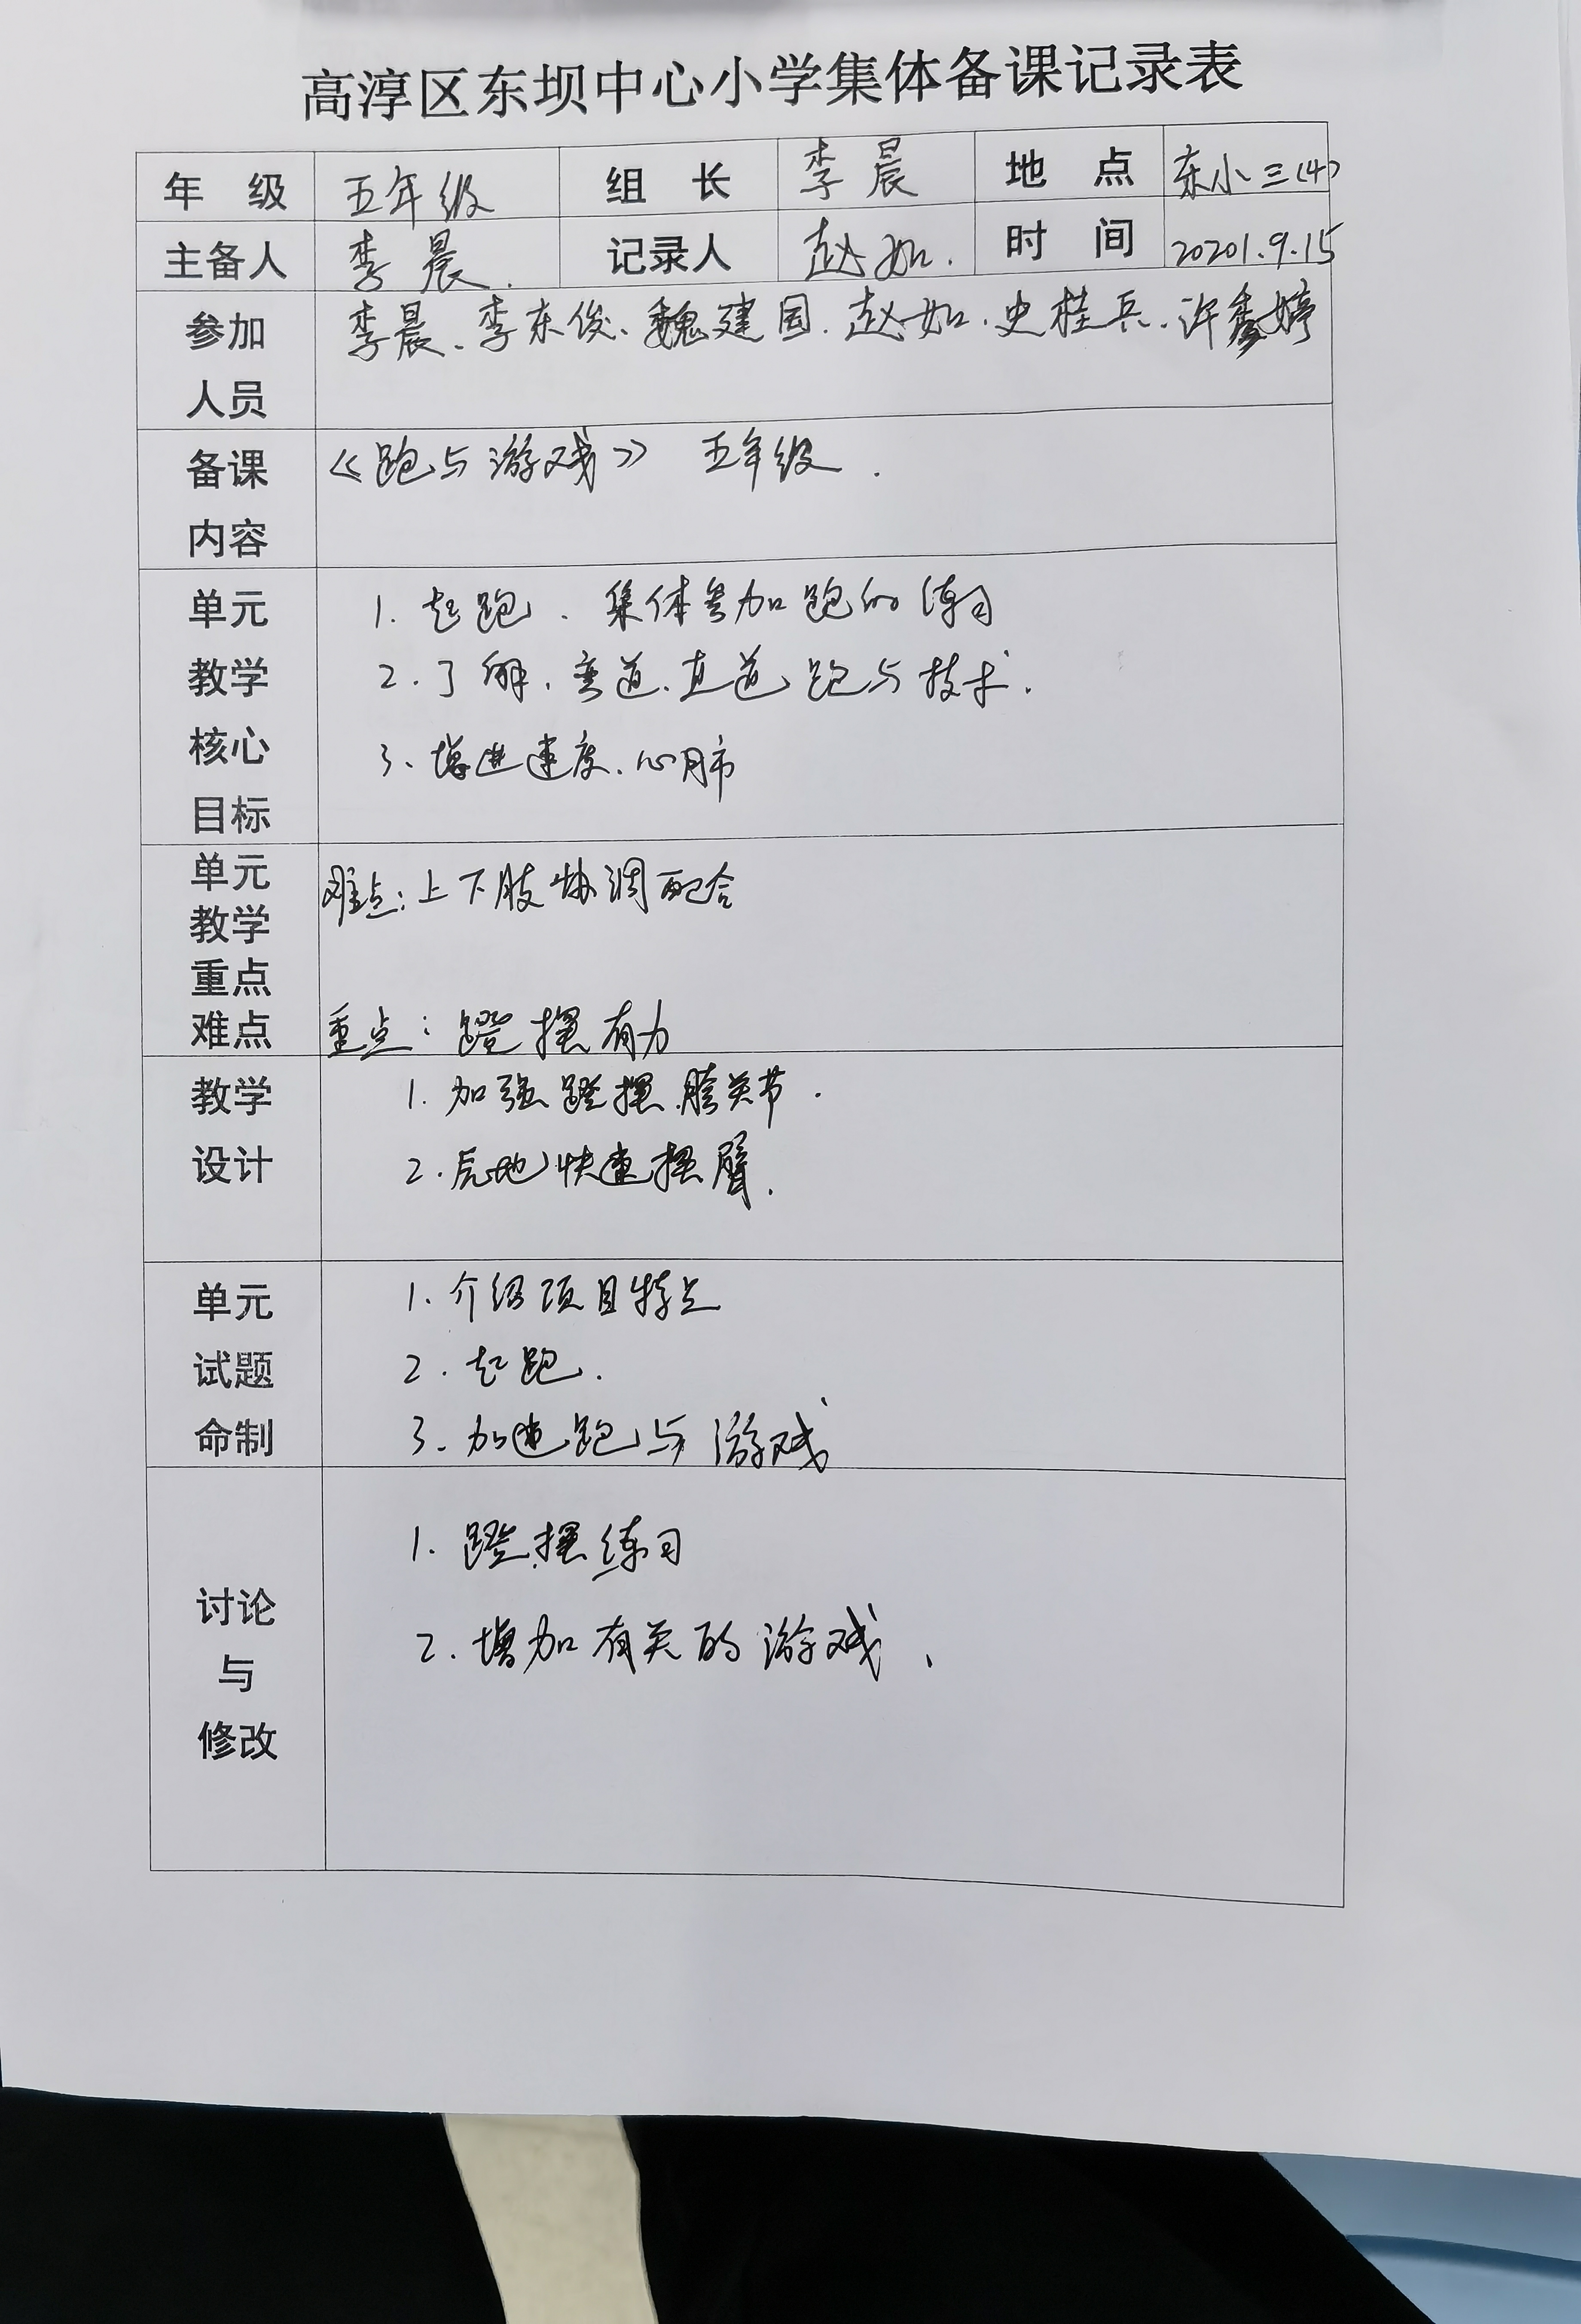 高淳区东坝中心小学集体备课记录表
年 级 五年级 组 长 李晨 地 点 东小三(4)
主备人 李晨. 记录人 赵如. 时 间 20201.9.15
参加 李晨、李东俊、魏建国、赵如、史桂兵、许婷
人员
备课 《跑与游戏》 五年级.
内容
单元 1. 起跑、集体参加跑的练习
教学 2. 了解、弯道、直道跑与技术.
核心 3、增进速度、心肺
目标
单元 难点:上下肢协调配合
教学
重点
难点 重点:蹬摆有力
教学 1. 加强蹬摆、胯关节.
设计 2. 原地快速摆臂.
单元 1. 介绍项目特点
试题 2. 起跑.
命制 3. 加速跑与游戏
1. 蹬摆练习
讨论 2. 增加有关的游戏、
与
修改